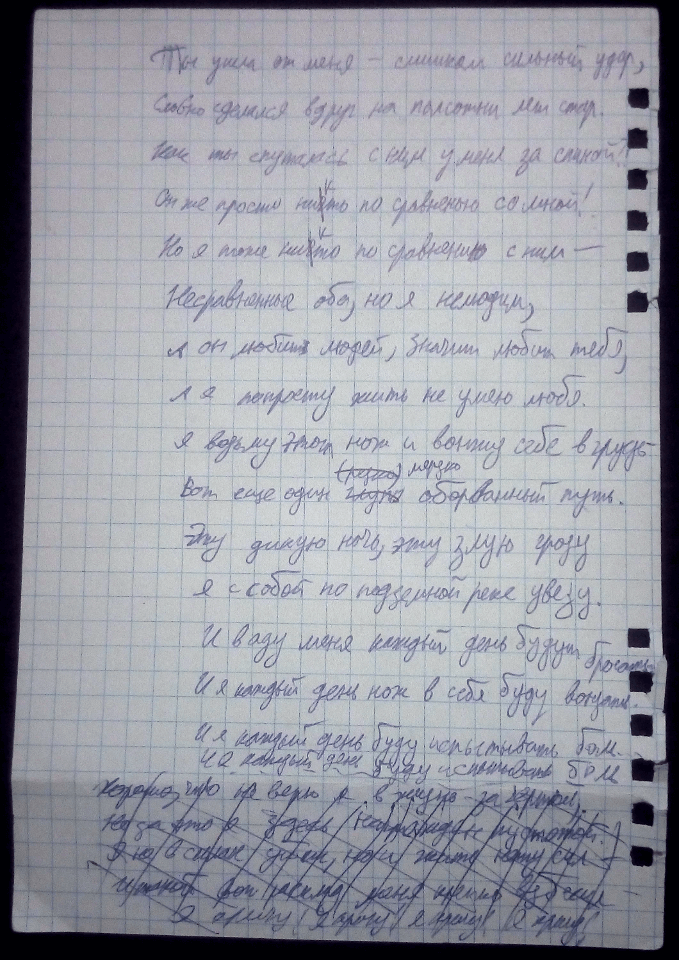 Ты ушла от меня – слишком сильный удар,
Словно сделался вдруг на полсотни лет стар.
Как ты спуталась с ним у меня за спиной?!
Он же просто никто по сравненью со мной!
Но я тоже никто по сравнению с ним —
Несравненные оба, но я нелюдим,
А он любит людей, значит любит тебя,
А я попросту жить не умею любя.
Я возьму этот нож и вонжу себе в грудь
(резко) мерзко
Вот еще один глупо оборванный путь.
Эту дикую ночь, эту злую грозу
Я с собой по подземной реке увезу.
И в аду меня каждый день будут бросать
И я каждый день нож в себя буду вонзать.
И я каждый день буду испытывать боль
И я каждый день буду испытывать боль
Хорошо, что не верю я в жизнь за чертой,
Но за это я здесь
Я не в силах
меня
Я кричу! Я кричу! Я кричу! Я кричу!